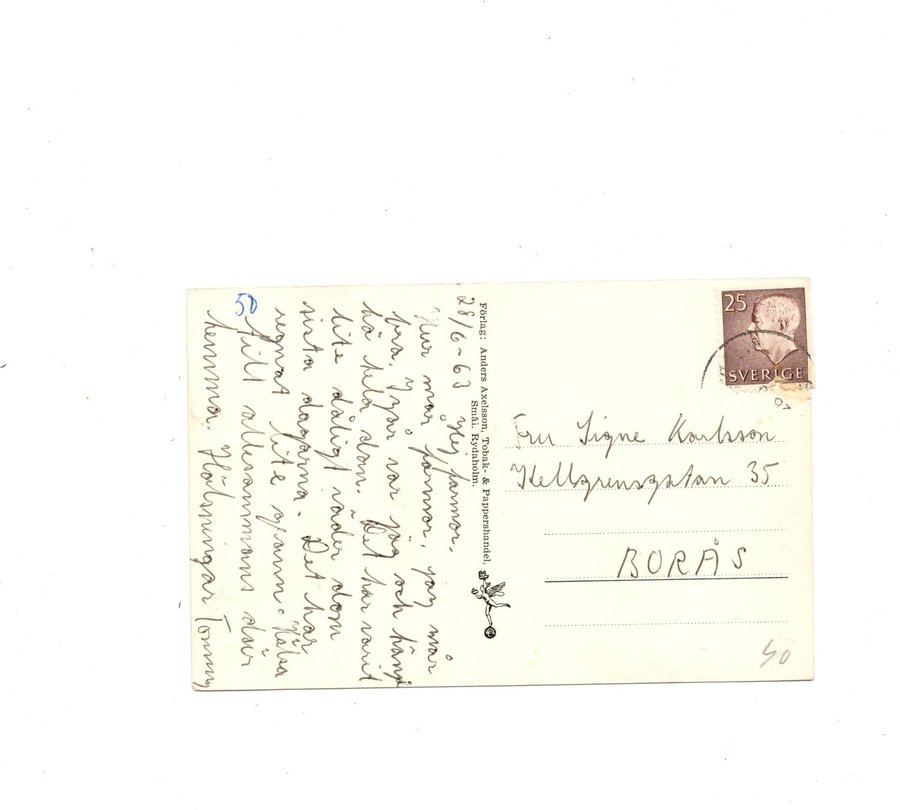 28/6-63 Hej farmor.
Hur mår farmor, jag mår
bra, y går var jag och
hå hela dan. Det har varit
lite dåligt väder dom
sista dagarna. Det har
regnat lite grann. Hälsa
till allesammans där
hemma. Hälsningar Tommy
50
Förlag: Anders Axelsson, Tobak- & Pappershandel,
Smål. Rydaholm.
25
SVERIGE
Fru Signe Karlsson
Kellgrensgatan 35
BORÅS
50